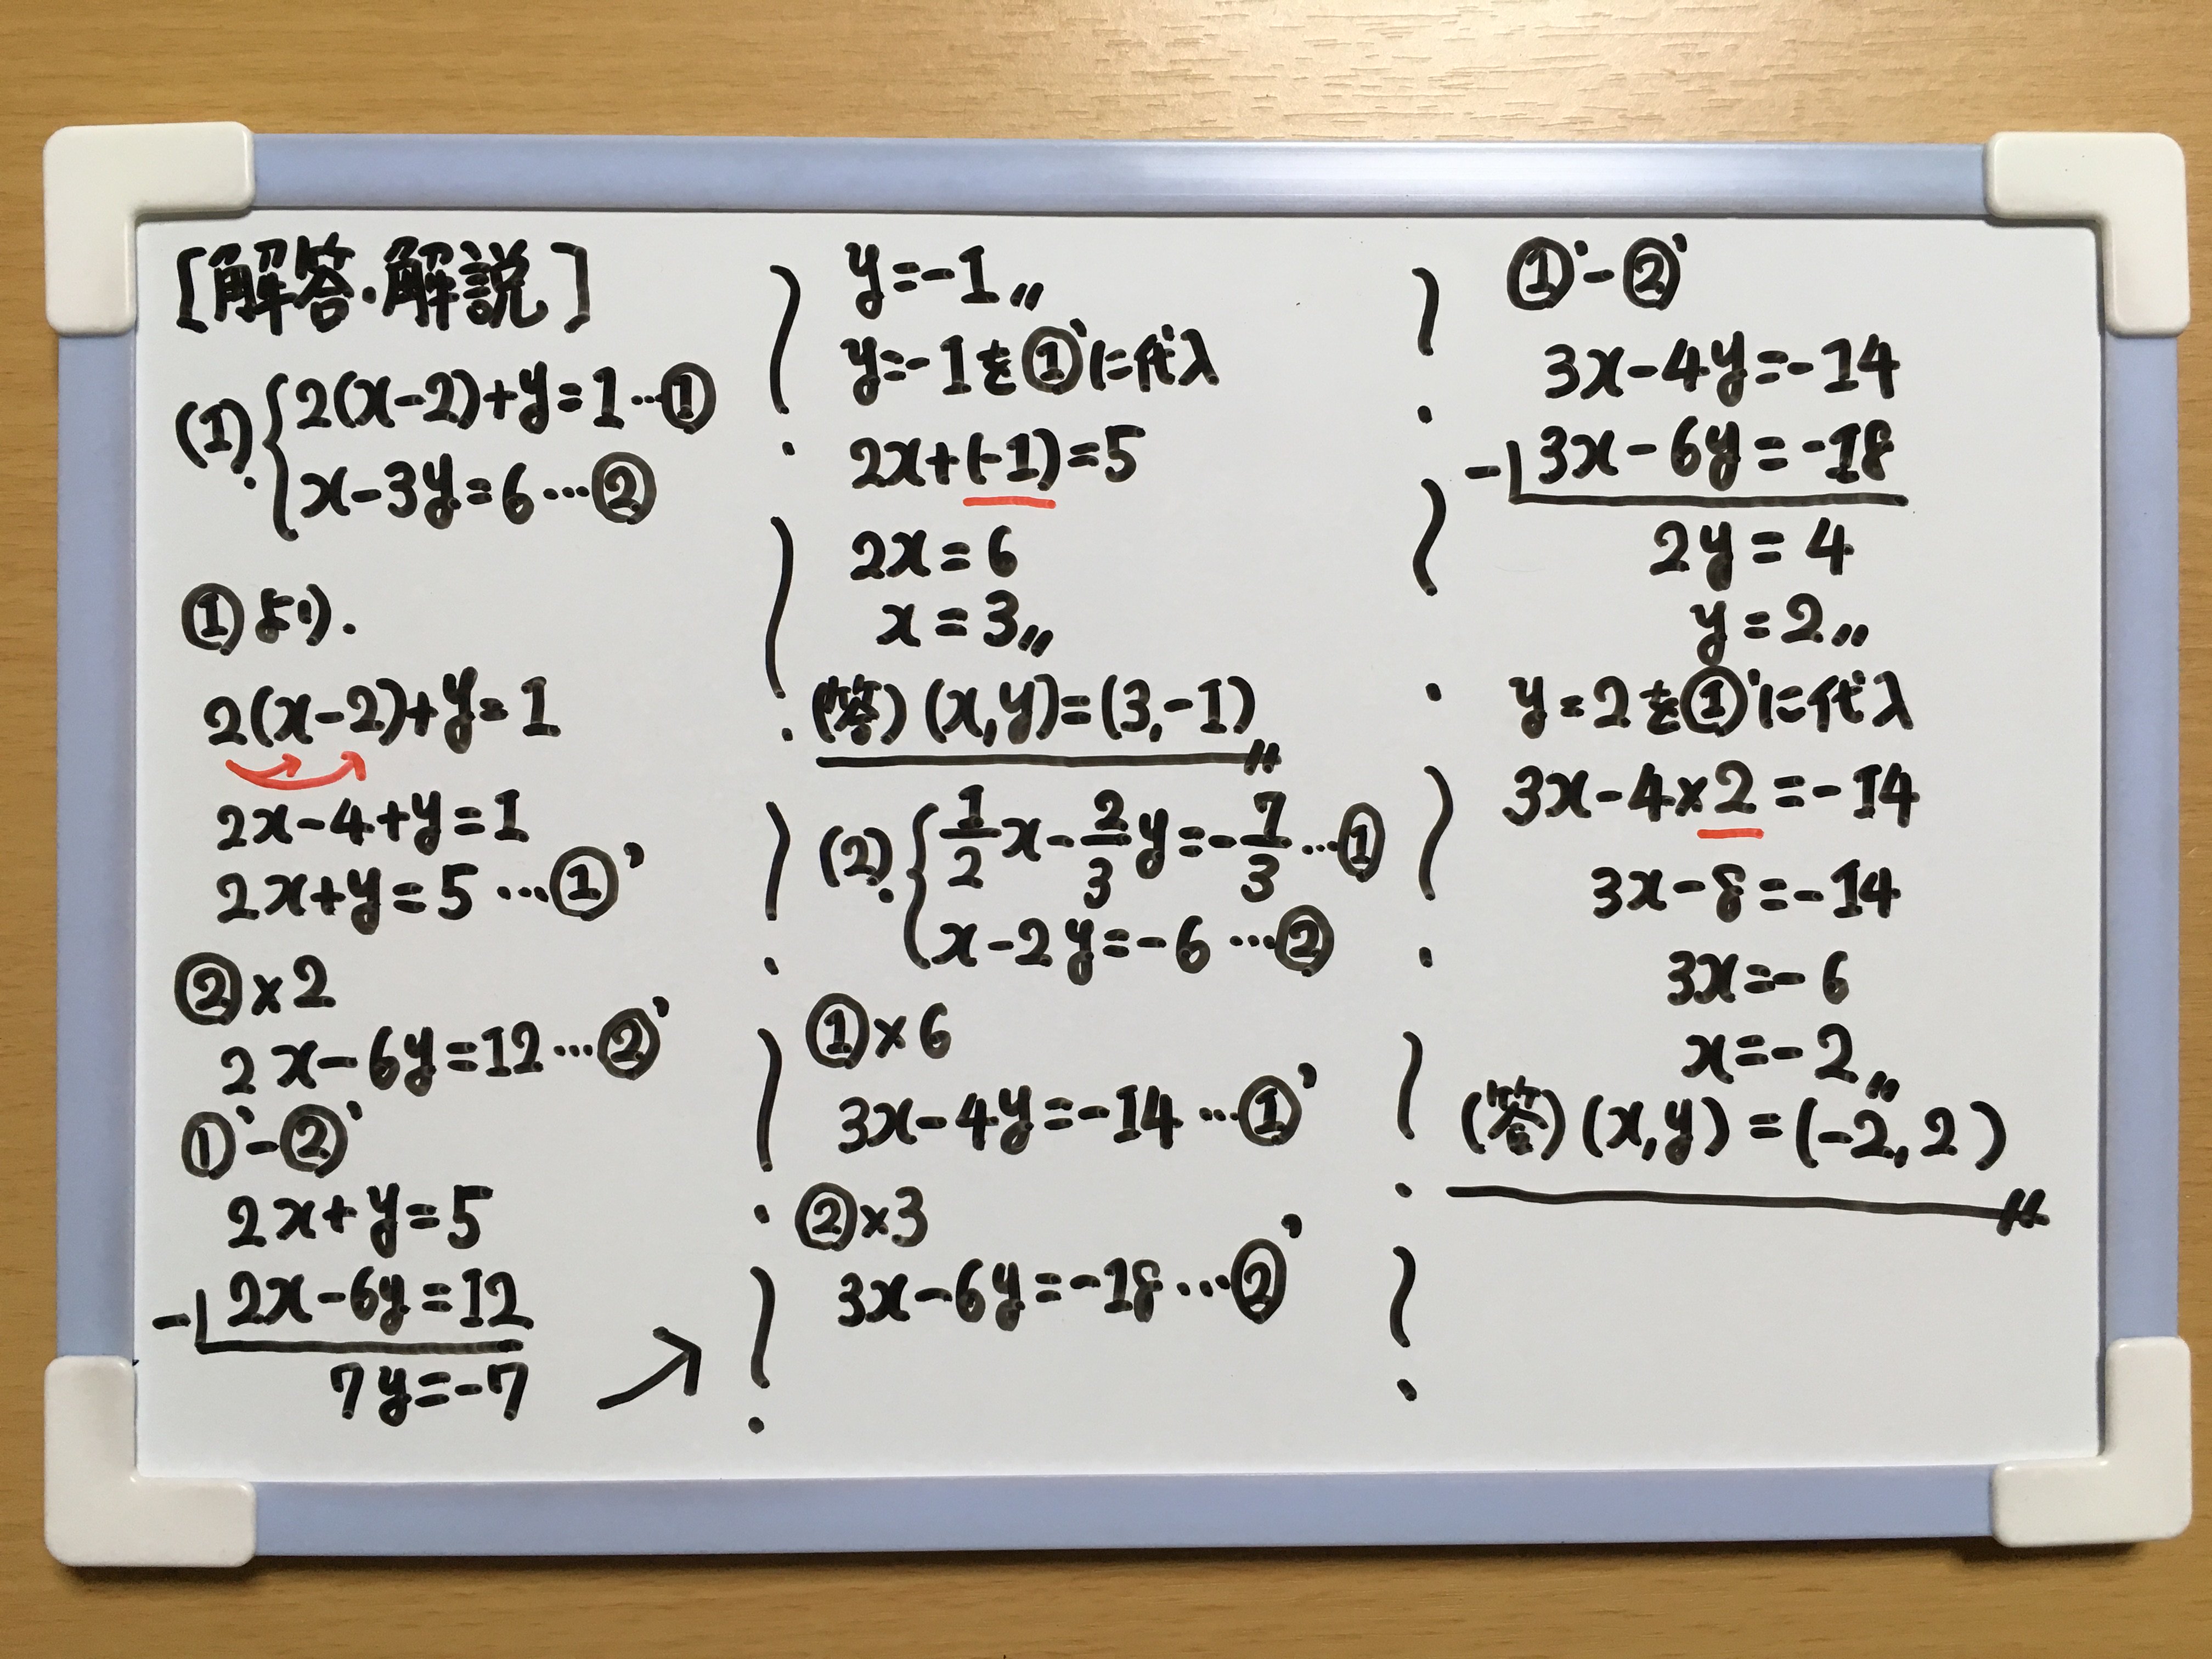 [解答・解説]
(1). {2(x-2)+y=1…①
x-3y=6…②
①より.
2(x-2)+y=1
2x-4+y=1
2x+y=5…①'
②×2
2x-6y=12…②'
①'-②'
2x+y=5
-) 2x-6y=12
7y=-7
y=-1〃
y=-1を①'に代入
2x+(-1)=5
2x=6
x=3〃
(答) (x,y)=(3,-1)〃
(2). {1/2x-2/3y=-7/3…①
x-2y=-6…②
①×6
3x-4y=-14…①'
②×3
3x-6y=-18…②'
①'-②'
3x-4y=-14
-) 3x-6y=-18
2y=4
y=2〃
y=2を①'に代入
3x-4×2=-14
3x-8=-14
3x=-6
x=-2〃
(答) (x,y)=(-2,2)〃